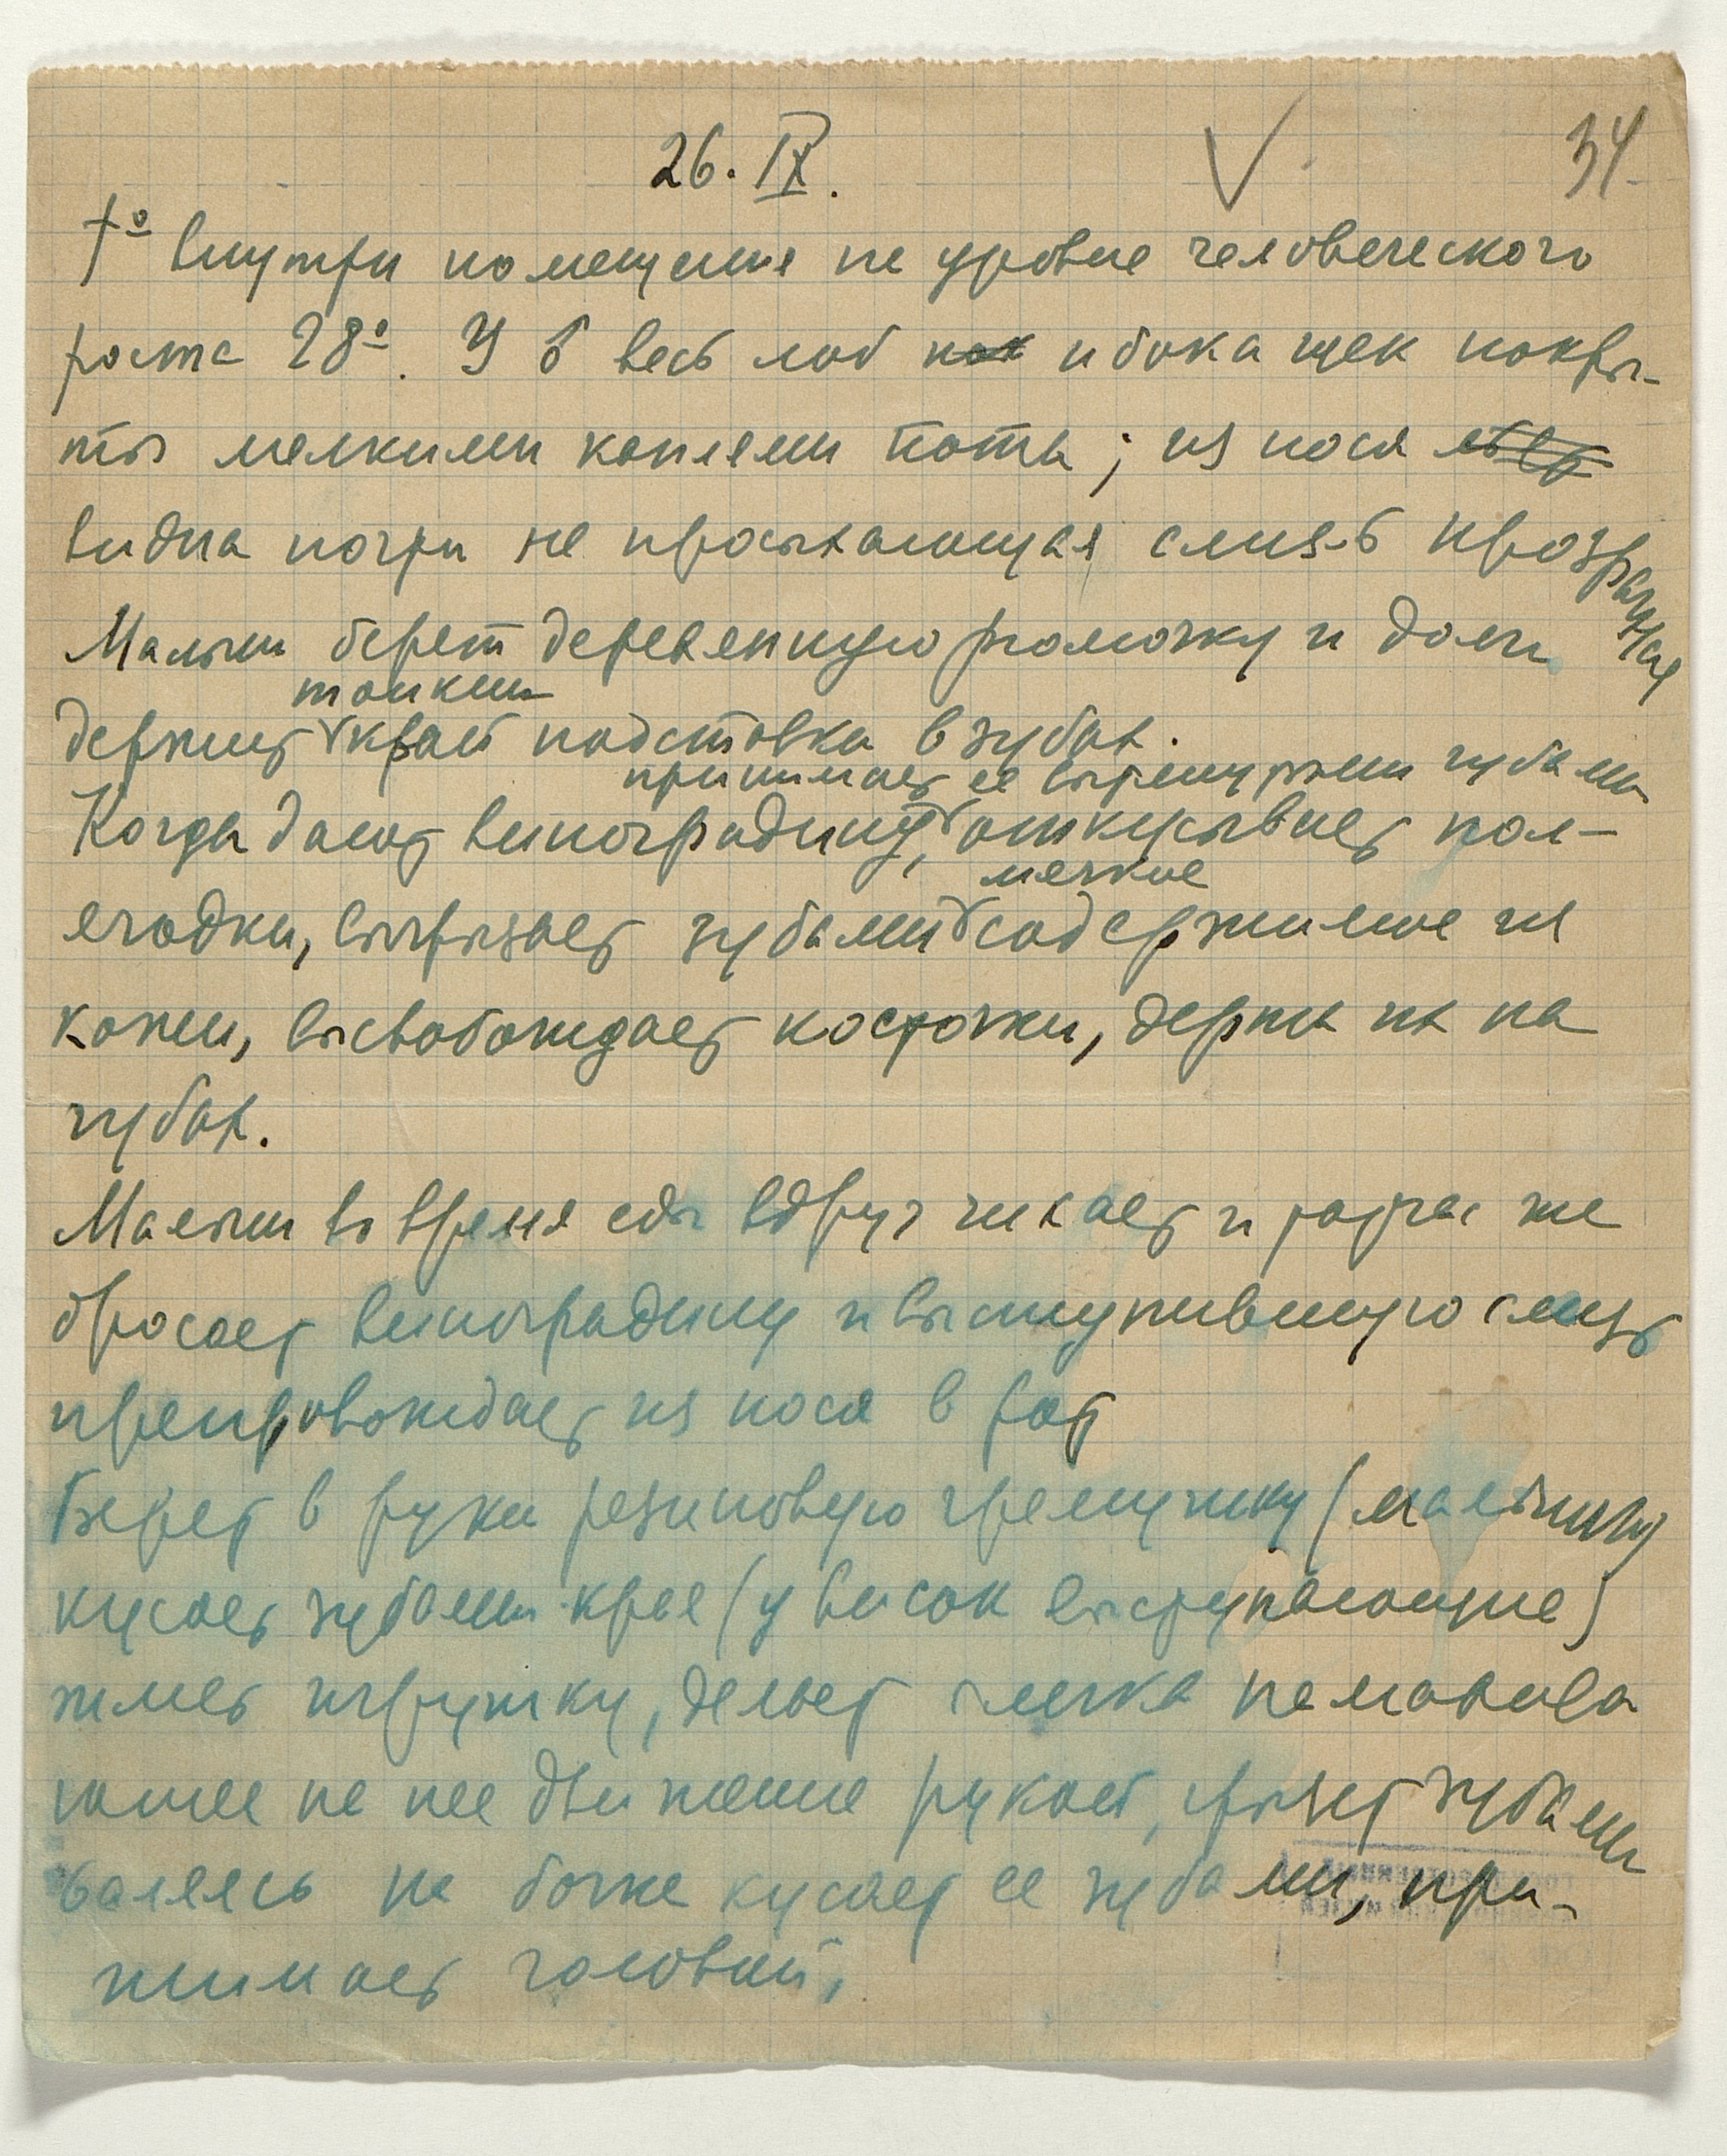 26. IX.
34
t° внутри помещения на уровне человеческого
роста 28°. У б весь лоб и бока щек покры-
ты мелкими каплями пота; из носа
видна почти не просыхающая слизь прозрачная
Малыш берет деревянную рюмочку и долго
держит тонкий край подставки в зубах.
принимает ее вытянутыми губами
Когда дают виноградину, откусывает пол-
ягодки, выгрызает зубами мягкое содержимое из
кожи, высвобождает косточки, держа их на
губах.
Малыш во время еды вдруг чихает и тотчас же
бросает виноградину и выступившую слизь
препровождает из носа в рот
Берет в руки резиновую гремушку (мальчика)
кусает зубами края (у висок выступающие)
жмет игрушку, делает слегка
на нее движение рукой, грызет зубами
валяясь на бочке кусает ее зубами, при-
жимает головой,